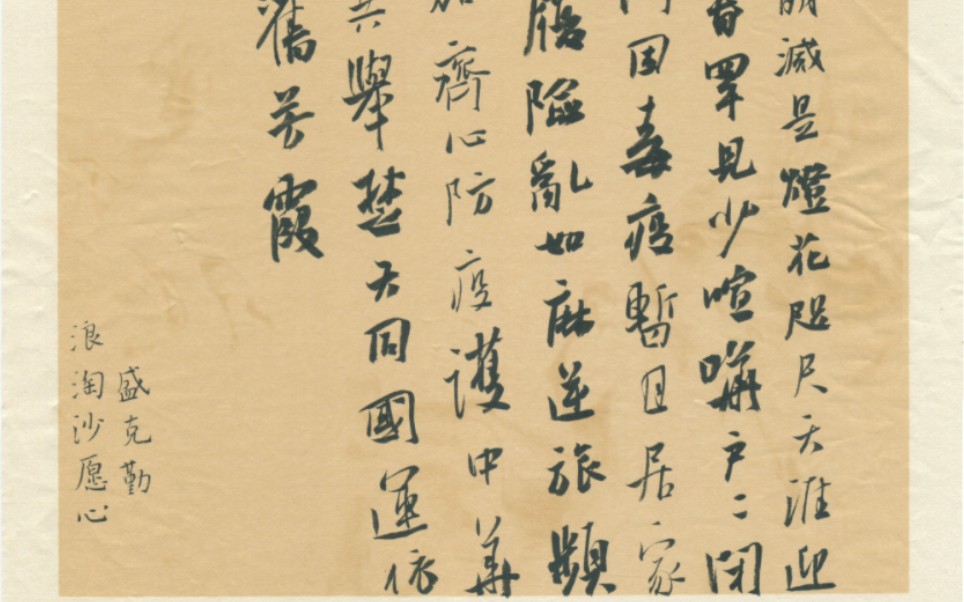 滅是燈花咫尺天涯迎
春罕見少喧嘩户二閉
因毒疫暫且居家
履險亂如麻逆旅顯
齊心防疫護中華
共舉楚天同國運依
舊芳霞
盛克勤
浪淘沙愿心